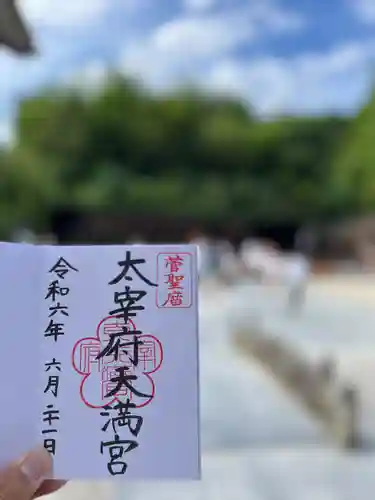 菅聖暦
太宰府天満宮
令和六年 六月二十一日